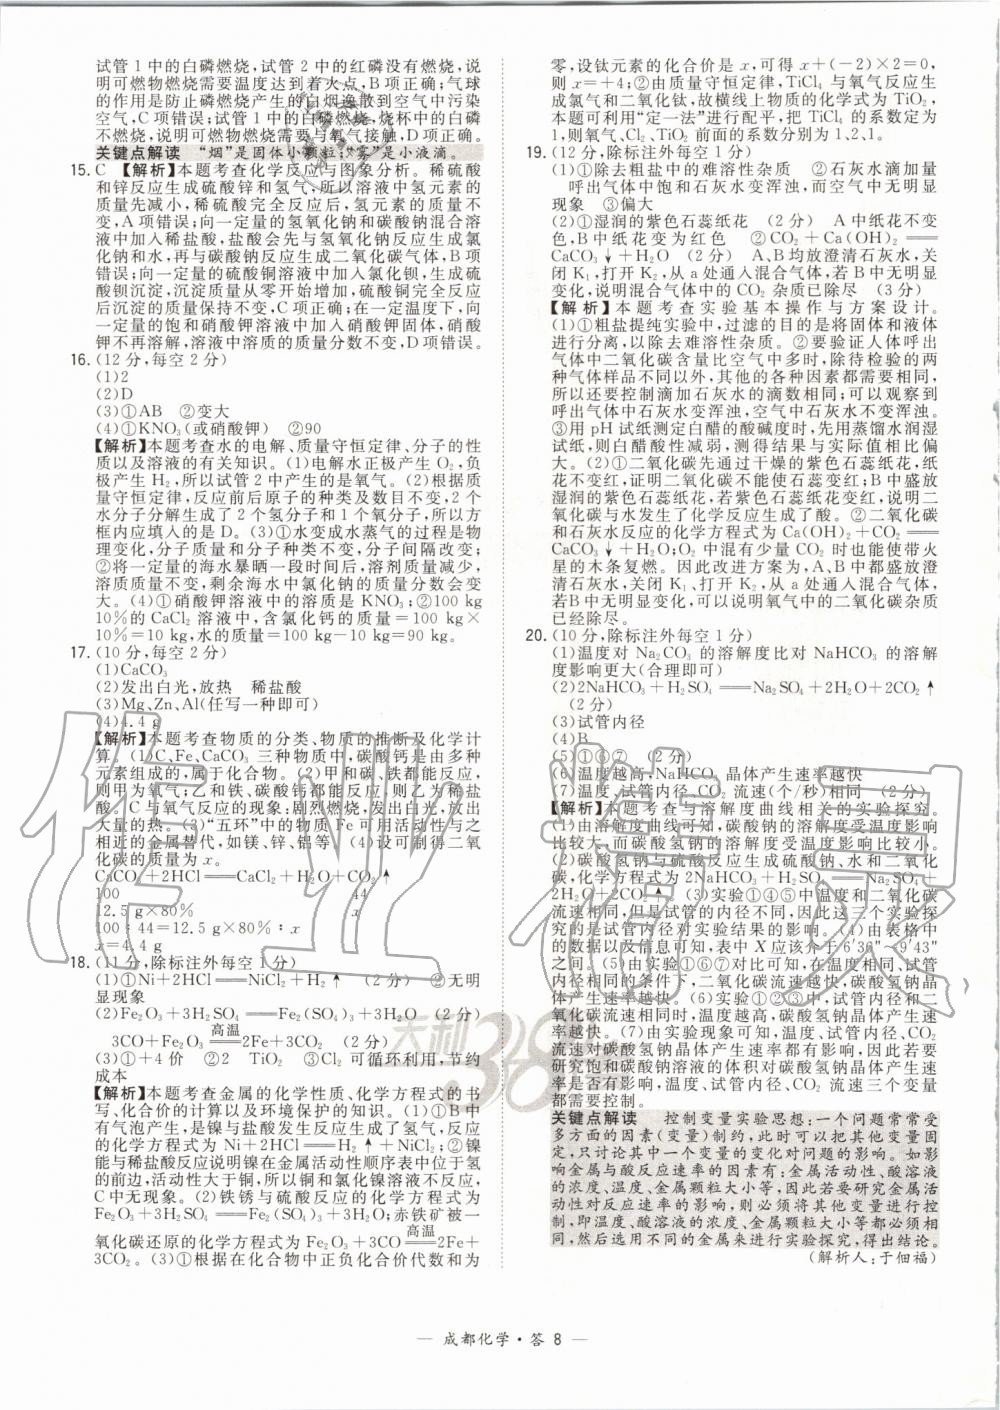 试管1中的白磷燃烧,试管2中的红磷没有燃烧,说
明可燃物燃烧需要温度达到着火点,B项正确;气球
的作用是防止磷燃烧产生的白烟逸散到空气中污染
空气,C项错误;试管1中的白磷燃烧,烧杯中的白磷
不燃烧,说明可燃物燃烧需要与氧气接触,D项正确。
关键点解读 “烟”是固体小颗粒;“雾”是小液滴。
15.C 【解析】本题考查化学反应与图象分析。稀硫酸
和锌反应生成硫酸锌和氢气,所以溶液中氢元素的
质量先减小,稀硫酸完全反应后,氢元素的质量不
变,A项错误;向一定量的氢氧化钠和碳酸钠混合溶
液中加入稀盐酸,盐酸会先与氢氧化钠反应生成氯
化钠和水,再与碳酸钠反应生成二氧化碳气体,B项
错误;向一定量的硫酸铜溶液中加入氯化钡,生成硫
酸钡沉淀,沉淀质量从零开始增加,硫酸铜完全反应
后沉淀的质量保持不变,C项正确;在一定温度下,向
一定量的饱和硝酸钾溶液中加入硝酸钾固体,硝酸
钾不再溶解,溶液中溶质的质量分数不变,D项错误。
16.(12分,每空2分)
(1)2
(2)D
(3)①AB ②变大
(4)①KNO₃(或硝酸钾) ②90
【解析】本题考查水的电解、质量守恒定律、分子的性
质以及溶液的有关知识。(1)电解水正极产生O₂,负
极产生H₂,所以试管2中产生的是氧气。(2)根据质
量守恒定律,反应前后原子的种类及数目不变,2个
水分子分解生成了2个氢分子和1个氧分子,所以方
框内应填入的是D。(3)①水变成水蒸气的过程是物
理变化,分子质量和分子种类不变,分子间隔改变;
②将一定量的海水暴晒一段时间后,溶剂质量减少,
溶质质量不变,剩余海水中氯化钠的质量分数会变
大。(4)①硝酸钾溶液中的溶质是KNO₃;②100 kg
10%的CaCl₂溶液中,含氯化钙的质量=100 kg×
10%=10 kg,水的质量=100 kg-10 kg=90 kg。
17.(10分,每空2分)
(1)CaCO₃
(2)发出白光,放热 稀盐酸
(3)Mg、Zn、Al(任写一种即可)
(4)4.4 g
【解析】本题考查物质的分类、物质的推断及化学计
算。(1)C、Fe、CaCO₃三种物质中,碳酸钙是由多种
元素组成的,属于化合物。(2)甲和碳、铁都能反应,
则甲为氧气;乙和铁、碳酸钙都能反应,则乙为稀盐
酸。C与氧气反应的现象:剧烈燃烧,发出白光,放出
大量的热。(3)“五环”中的物质Fe可用活动性与之
相近的金属替代,如镁、锌、铝等。(4)设可制得二氧
化碳的质量为x。
CaCO₃+2HCl══CaCl₂+H₂O+CO₂↑
100 44
12.5 g×80% x
100∶44=12.5 g×80%∶x
x=4.4 g
18.(11分,除标注外每空1分)
(1)①Ni+2HCl══NiCl₂+H₂↑ (2分) ②无明
显现象
(2)Fe₂O₃+3H₂SO₄══Fe₂(SO₄)₃+3H₂O (2分)
3CO+Fe₂O₃ 高温══ 2Fe+3CO₂ (2分)
(3)①+4价 ②2 TiO₂ ③Cl₂可循环利用,节约
成本
【解析】本题考查金属的化学性质、化学方程式的书
写、化合价的计算以及环境保护的知识。(1)①B中
有气泡产生,是镍与盐酸发生反应生成了氢气,反应
的化学方程式为Ni+2HCl══H₂↑+NiCl₂;②镍
能与稀盐酸反应说明镍在金属活动性顺序表中位于氢
的前边,活动性大于铜,所以铜和氯化镍溶液不反应,
C中无现象。(2)铁锈与硫酸反应的化学方程式为
Fe₂O₃+3H₂SO₄══Fe₂(SO₄)₃+3H₂O;赤铁矿被一
氧化碳还原的化学方程式为Fe₂O₃+3CO 高温══ 2Fe+
3CO₂。(3)①根据在化合物中正负化合价代数和为
零,设钛元素的化合价是x,可得x+(-2)×2=0,
则x=+4;②由质量守恒定律,TiCl₄与氧气反应生
成氯气和二氧化钛,故横线上物质的化学式为TiO₂,
本题可利用“定一法”进行配平,把TiCl₄的系数定为
1,则氧气、Cl₂、TiO₂前面的系数分别为1、2、1。
19.(12分,除标注外每空1分)
(1)①除去粗盐中的难溶性杂质 ②石灰水滴加量
呼出气体中饱和石灰水变浑浊,而空气中无明显
现象 ③偏大
(2)①湿润的紫色石蕊纸花 (2分) A中纸花不变
色,B中纸花变为红色 ②CO₂+Ca(OH)₂══
CaCO₃↓+H₂O (2分) A、B均放澄清石灰水,关
闭K₁,打开K₂,从a处通入混合气体,若B中无明显
变化,说明混合气体中的CO₂杂质已除尽 (3分)
【解析】本题考查实验基本操作与方案设计。
(1)①粗盐提纯实验中,过滤的目的是将固体和液体
进行分离,以除去难溶性杂质。②要验证人体呼出气
体中二氧化碳含量比空气中多时,除待检验的两
种气体样品不同以外,其他的各种因素都需要相同,
所以还要控制滴加石灰水的滴数相同;可以观察到
呼出气体中石灰水变浑浊,空气中石灰水无现象。
③用pH试纸测定白醋的酸碱度时,先用蒸馏水润湿
试纸,则白醋酸性减弱,测得结果与实际值相比偏
大。(2)①二氧化碳先通过干燥的紫色石蕊纸花,纸
花不变红,证明二氧化碳不能使石蕊变红;B中盛放
湿润的紫色石蕊纸花,若紫色石蕊纸花变红,说明二
氧化碳与水发生了化学反应生成了酸。②二氧化碳
和石灰水反应的化学方程式为Ca(OH)₂+CO₂══
CaCO₃↓+H₂O;O₂中混有少量CO₂时也能使带火
星的木条复燃。因此改进方案为,A、B中都盛放澄
清石灰水,关闭K₁、打开K₂,从a处通入混合气体,
若B中无明显变化,可以说明氧气中的二氧化碳杂质
已经除尽。
20.(10分,除标注外每空1分)
(1)温度对Na₂CO₃的溶解度比对NaHCO₃的溶解
度影响更大(合理即可)
(2)2NaHCO₃+H₂SO₄══Na₂SO₄+2H₂O+2CO₂↑
(2分)
(3)试管内径
(4)B
(5)①⑥⑦ (2分)
(6)温度越高,NaHCO₃晶体产生速率越快
(7)温度、试管内径、CO₂流速(个/秒)相同 (2分)
【解析】本题考查与溶解度曲线相关的实验探究。
(1)由溶解度曲线可知,碳酸钠的溶解度受温度影响
比较大,而碳酸氢钠的溶解度受温度影响比较小。
(2)碳酸氢钠与硫酸反应生成硫酸钠、水和二氧化
碳,化学方程式为2NaHCO₃+H₂SO₄══Na₂SO₄+
2H₂O+2CO₂↑。(3)实验①④⑤中温度和二氧化碳
流速相同,但是试管的内径不同,因此这三个实验探
究的是试管内径对实验结果的影响。(4)由表格中
的数据以及信息可知,表中X应该介于6′36″~9′43″
之间。(5)由实验①⑥⑦对比可知,在温度、试管
内径相同的条件下,二氧化碳流速越快,碳酸氢钠晶
体产生速率越快。(6)实验①②③中,试管内径和二
氧化碳流速相同时,温度越高,碳酸氢钠晶体产生速
率越快。(7)由实验现象可知,温度、试管内径、CO₂
流速对碳酸氢钠晶体产生速率都有影响,因此若要
研究饱和碳酸钠溶液的体积对碳酸氢钠晶体产生速
率的影响,则需要温度、试管内径、CO₂流速三个变量
都需要控制。
关键点解读 控制变量实验思想:一个问题常常受
多方面的因素(变量)制约,此时可以把其他变量固
定,只讨论其中一个变量的变化对问题的影响。如影
响金属与酸反应速率的因素有:金属活动性、酸溶液
的浓度、温度、金属颗粒大小等,因此若要研究金属活
动性对反应速率的影响,则必须将其他变量进行控
制,即温度、酸溶液的浓度、金属颗粒大小等都必须相
同,然后选用不同的金属来进行实验探究,得出结论。
(解析人:于佃福)
— 成都化学·答 8 —
作业精灵
天利38